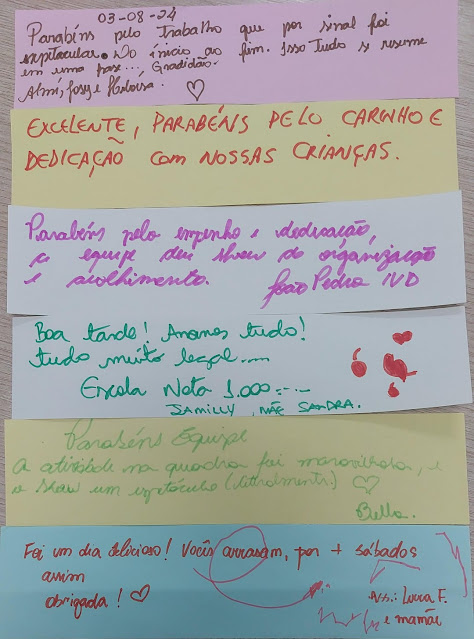 03-08-24
Parabéns pelo Trabalho que por sinal foi
espetacular. Do início ao fim. Isso Tudo se resume
em uma frase... Gradidão.
Almi, Josy e Heloísa.
EXCELENTE, PARABÉNS PELO CARINHO E
DEDICAÇÃO COM NOSSAS CRIANÇAS.
Parabéns pelo empenho e dedicação,
a equipe deu show de organização
e acolhimento.
João Pedro IVD
Boa tarde! Amamos tudo!
tudo muito legal....
Escola Nota 1.000....
JAMILLY, MÃE SANDRA.
Parabéns Equipe
A atividade na quadra foi maravilhosa, e
o show um espetáculo (literalmente)
Bella.
Foi um dia delicioso! Vocês arrasam, por + sábados
assim
obrigada!
Ass.: Lucca F.
e mamãe